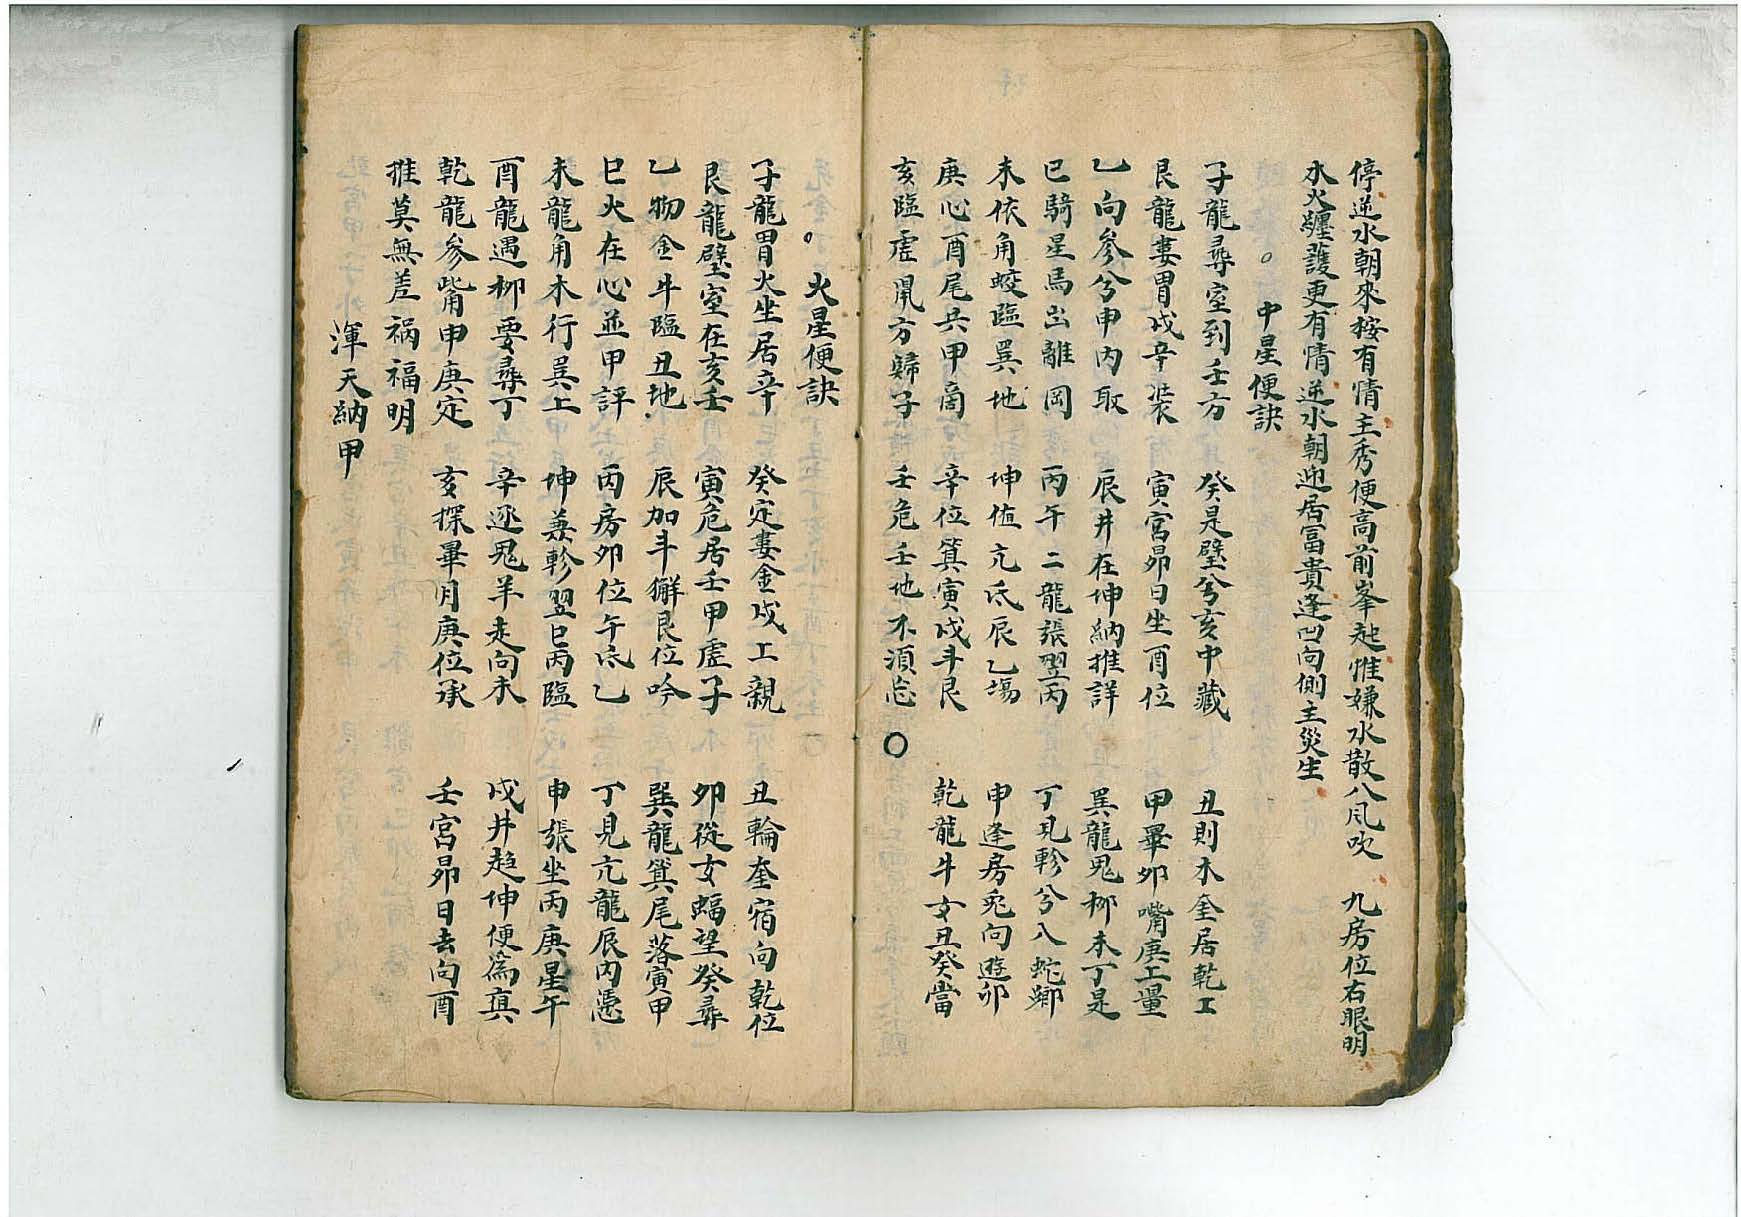 停逆水朝來按有情主秀便高前峯起惟嫌水散八風吹　九房位右眼明
水火纏護更有情逆水朝迎居冨貴逢凹向側主災生
。中星便訣
子龍尋室到壬方　癸是壁兮亥中藏　丑則木奎居乾工
艮龍婁胃戌辛裝　寅宮昴日坐酉位　甲畢卯嘴庚工量
乙向參兮申内取　辰井在坤納推詳　巽龍鬼柳未丁是
巳騎星馬出離岡　丙午二龍張翌丙　丁見軫兮八蛇鄉
未依角蛟臨巽地　坤值亢氐辰乙塲　申逢房兎向遊卯
庚心酉尾共甲啇　辛位箕寅戌斗艮　乾龍牛女丑癸當
亥臨虛鼠方歸子　壬危壬地不須忘〇
。火星便訣
子龍胃火坐居辛　癸定婁金戌工親　丑輪奎宿向乾位
艮龍壁室在亥壬　寅危居壬甲虛子　卯從女蝠望癸尋
乙物金牛臨丑地　辰加斗獬艮位吟　巽龍箕尾落寅甲
巳火在心並甲評　丙房卯位午氐乙　丁見亢龍辰内憑
未龍角木行巽上　坤兼軫翌巳丙臨　申張坐丙庚星午
酉龍遇柳要尋丁　辛逐鬼羊走向未　戌井趋坤便為真
乾龍參觜申庚定　亥探畢月庚位承　壬宮昴日去向酉
推莫無差禍福明
渾天納甲